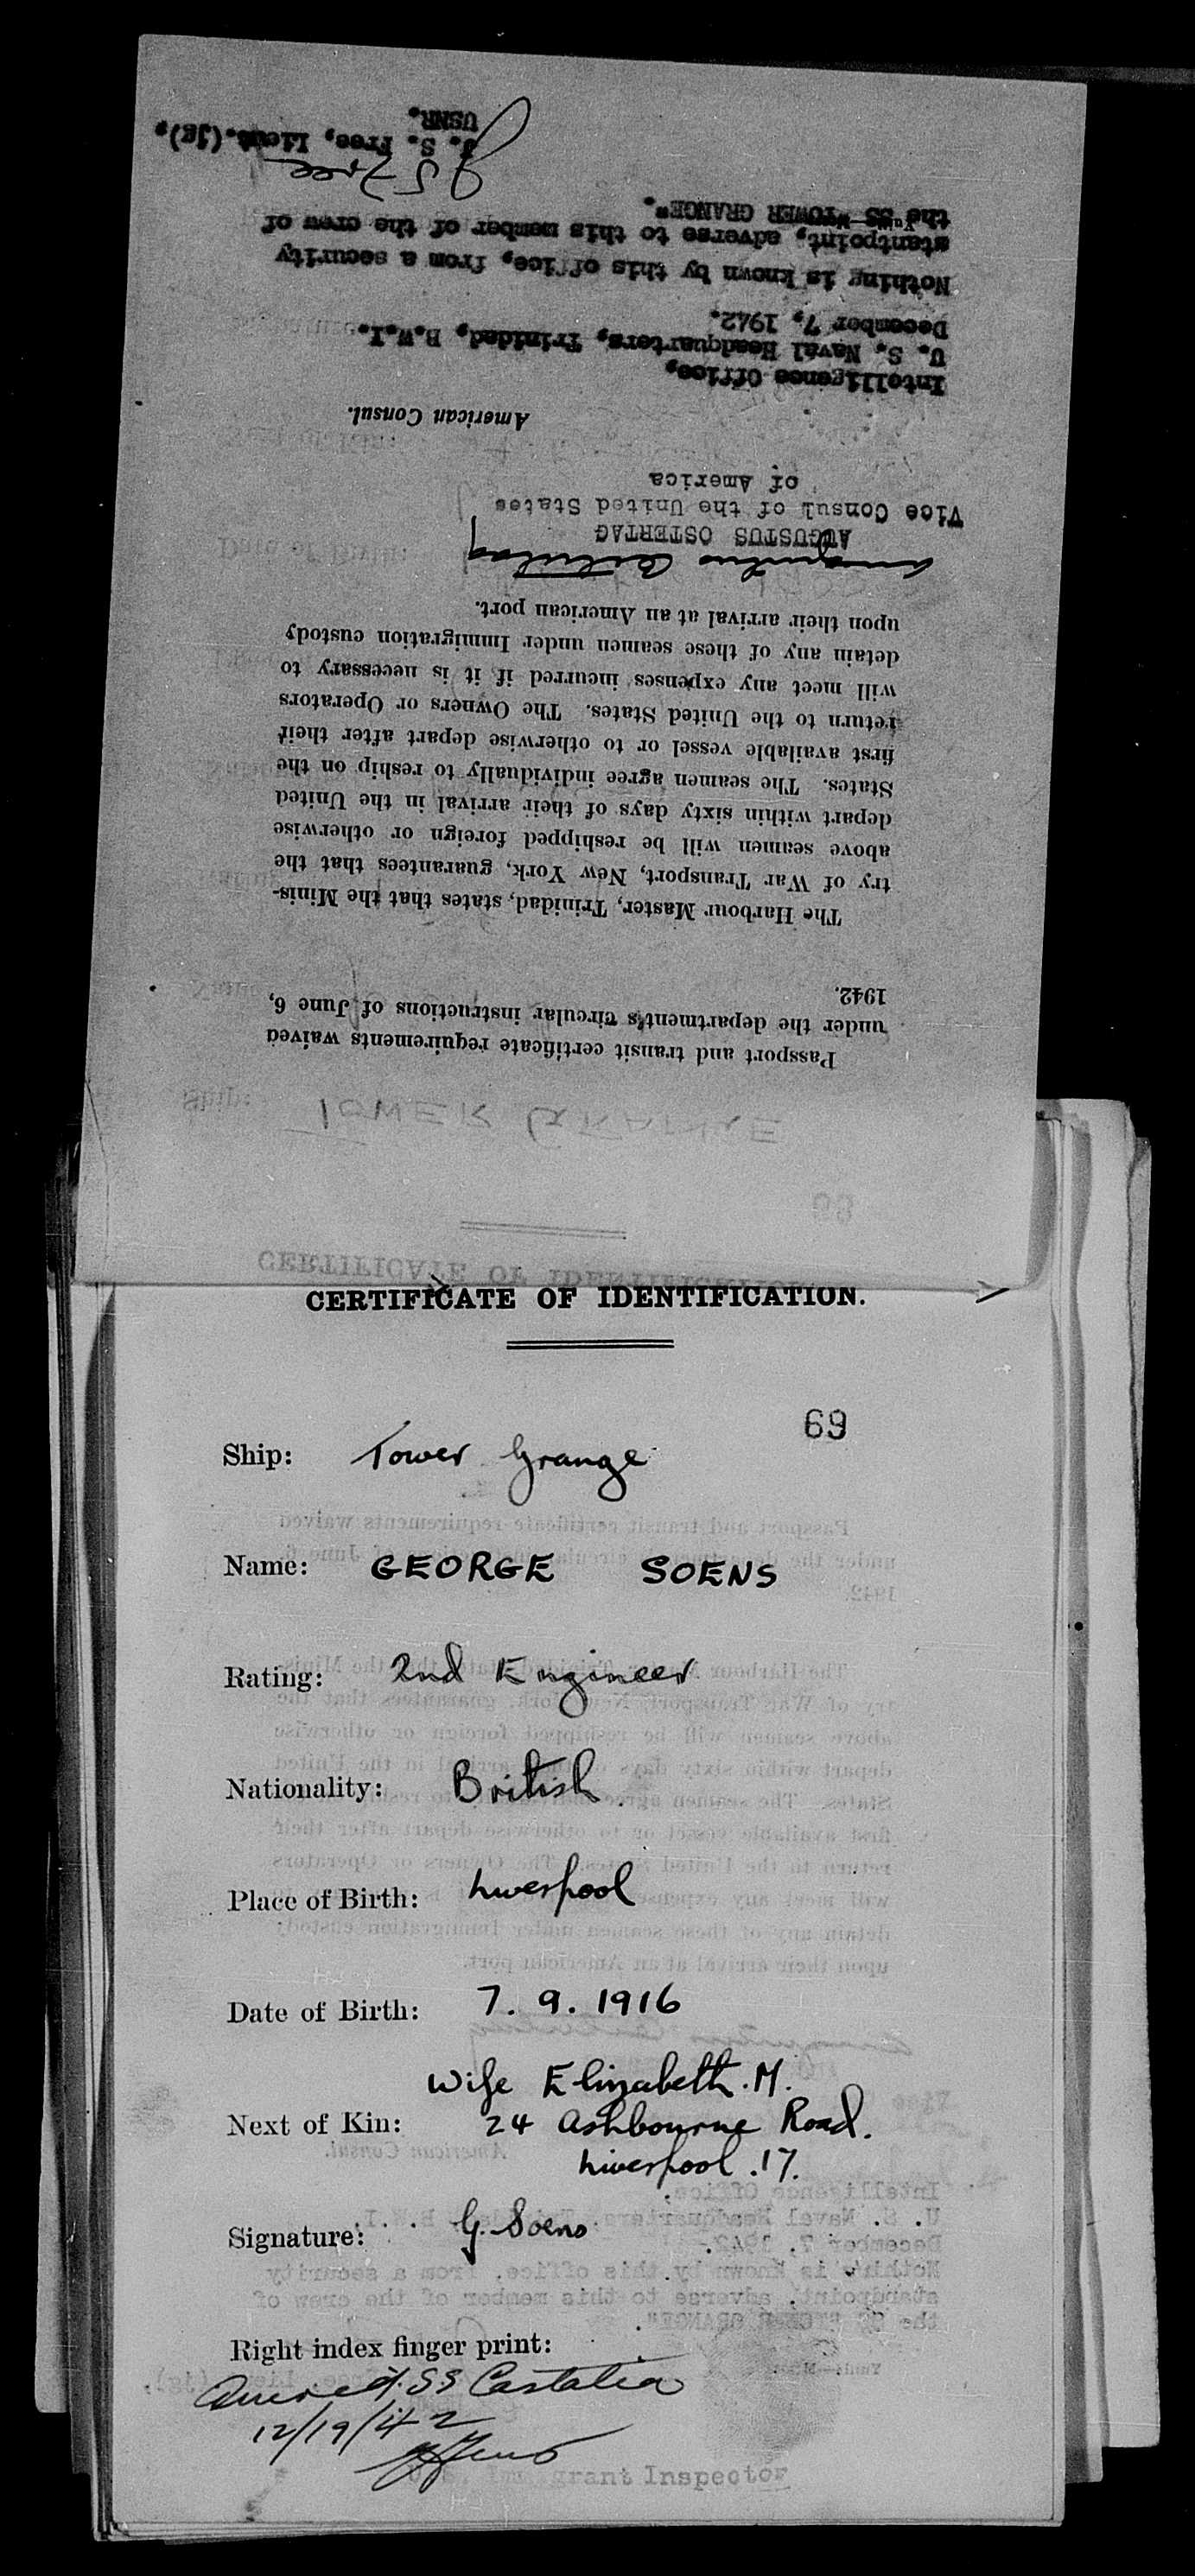 Passport and transit certificate requirements waived
under the department's circular instructions of June 6,
1942.
The Harbour Master, Trinidad, states that the Minis-
try of War Transport, New York, guarantees that the
above seamen will be reshipped foreign or otherwise
depart within sixty days of their arrival in the United
States. The seamen agree individually to reship on the
first available vessel or to otherwise depart after their
return to the United States. The Owners or Operators
will meet any expenses incurred if it is necessary to
detain any of these seamen under Immigration custody
upon their arrival at an American port.
AUGUSTUS OSTERTAG
Vice Consul of the United States
of America
American Consul.
Intelligence Office,
U. S. Naval Headquarters, Trinidad, B.W.I.
December 7, 1942.
Nothing is known by this office, from a security
stantpoint, adverse to this member of the crew of
the SS "TOWER GRANGE".
J S Free
J. S. Free, Lieut.(jg),
USNR.
CERTIFICATE OF IDENTIFICATION.
69
Ship: Tower Grange
Name: GEORGE SOENS
Rating: 2nd Engineer
Nationality: British
Place of Birth: Liverpool
Date of Birth: 7. 9. 1916
Wife Elizabeth. M.
Next of Kin: 24 Ashbourne Road.
Liverpool .17.
Signature: G. Soens
Right index finger print:
Arrived SS Castalia
12/19/42
Immigrant Inspector